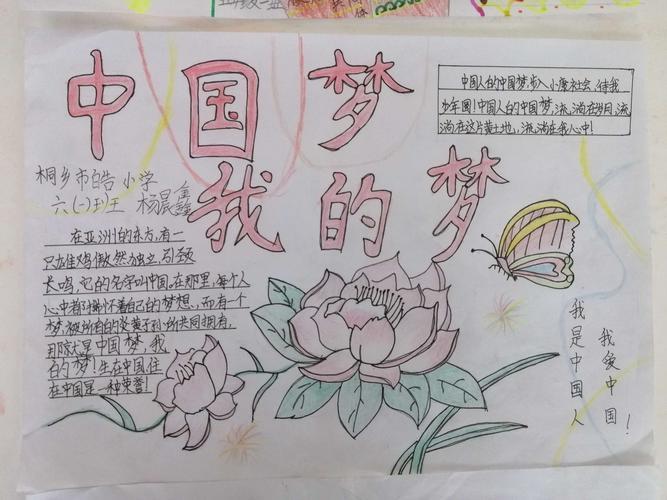 中国梦
我的梦
中国人的中国梦,步入小康社会,待我
少年圆!中国人的中国梦,流淌在岁月,流
淌在这片黄土地,流淌在我心中!
桐乡市皓小学
六(一)班 杨晨鑫
在亚洲的东方,有一
只雄鸡傲然独立,引颈
长鸣,它的名字叫中国,在那里,每个人
心中都怀着自己的梦想,而有一个
梦,被所有的炎黄子孙所共同拥有,
那就是中国梦,我
的梦!生在中国,住
在中国是一种荣誉!
我爱中国!
我是中国人